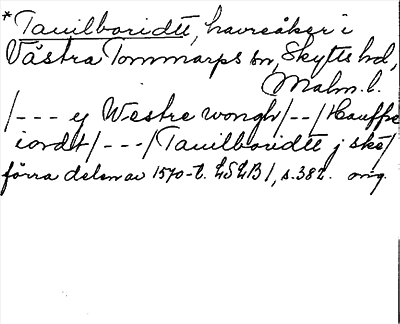 *Tauilboridtt, havreåker i
Västra Tommarps sn, Skytts hd,
Malm. l.
/--- ej Westre wongh/--/Hauffre
iordt/---/Tauilboridtt j ske/
förra delen av 1570-t. LSLB1, s.382. orig.